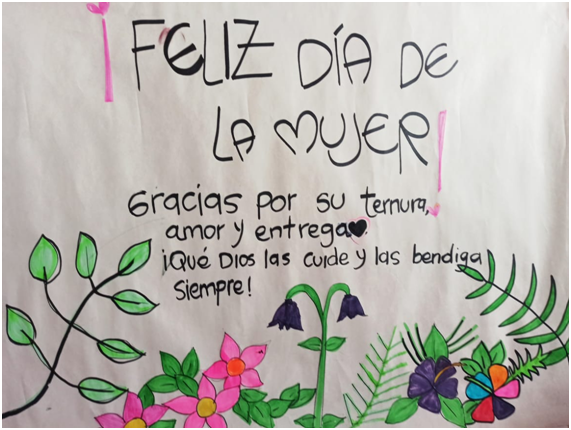 ¡FELIZ DÍA DE
LA MUJER!
Gracias por su ternura,
amor y entrega
¡Qué Dios las cuide y las bendiga
siempre!